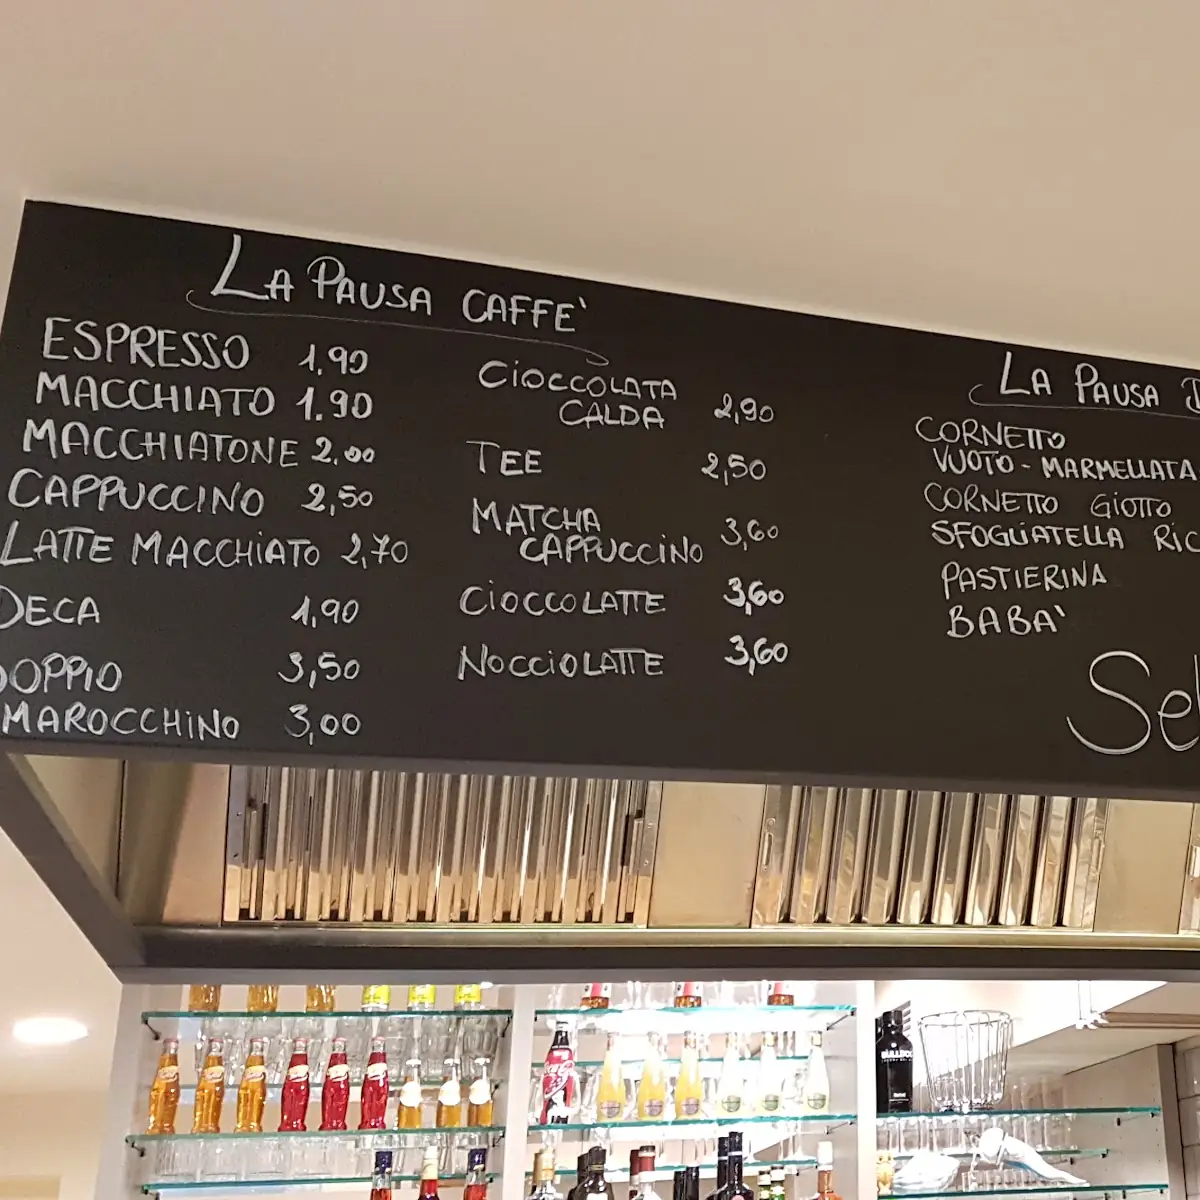 LA PAUSA CAFFE'
ESPRESSO 1,90
MACCHIATO 1.90
MACCHIATONE 2.00
CAPPUCCINO 2,50
LATTE MACCHIATO 2,70
DECA 1,90
DOPPIO 3,50
MAROCCHINO 3,00
CIOCCOLATA
CALDA 2,90
TEE 2,50
MATCHA
CAPPUCCINO 3,60
CIOCCOLATTE 3,60
NOCCIOLATTE 3,60
LA PAUSA
CORNETTO
VUOTO - MARMELLATA
CORNETTO GIOTTO
SFOGLIATELLA RIC
PASTIERINA
BABA'
Sel
BULLDOG